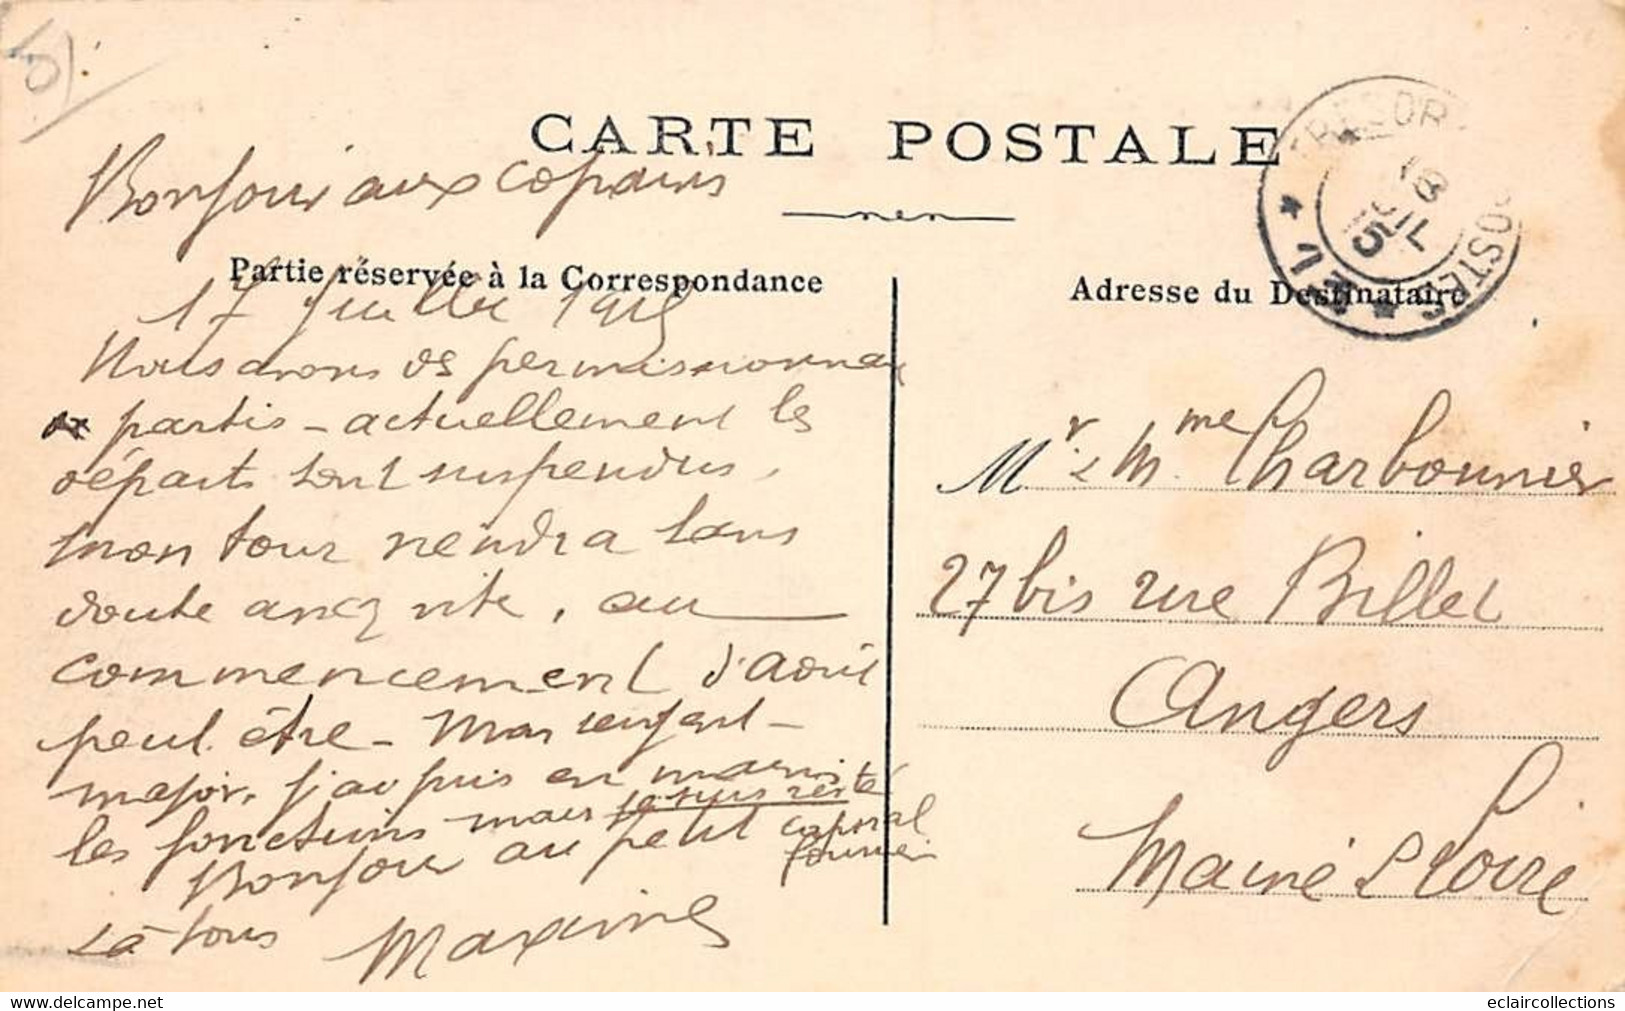 CARTE POSTALE
Bonjour aux copains
Partie réservée à la Correspondance
17 Juillet 1915
Nous avons des permissionnaires
partis - actuellement les
départs sont suspendus,
mon tour viendra sans
doute assez vite, au
commencement d'août
peut être - Mar sergent-
major, j'ai pris en
les fonctions mais je suis resté
caporal
fourrier
Bonjour au petit
& à tous Maxime
Adresse du Destinataire
TRESOR POSTES
18
JUIL
15
Mr & Mme Charbonnier
27 bis rue Billet
Angers
Maine & Loire
eclaircollections